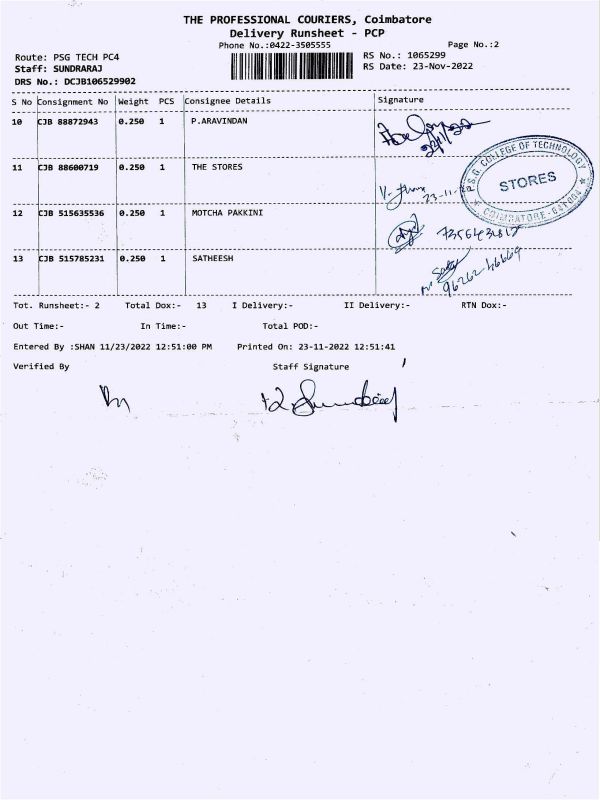 THE PROFESSIONAL COURIERS, Coimbatore
Delivery Runsheet - PCP
Phone No.:0422-3505555
Page No.:2
Route: PSG TECH PC4
RS No.: 1065299
Staff: SUNDRARAJ
RS Date: 23-Nov-2022
DRS No.: DCJB106529902
S No Consignment No Weight PCS Consignee Details Signature
10 CJB 88872943 0.250 1 P.ARAVINDAN
11 CJB 88600719 0.250 1 THE STORES
23-11-
P.S.G. COLLEGE OF TECHNOLOGY
STORES
COIMBATORE - 641004
12 CJB 515635536 0.250 1 MOTCHA PAKKINI
13 CJB 515785231 0.250 1 SATHEESH
Tot. Runsheet:- 2 Total Dox:- 13 I Delivery:- II Delivery:- RTN Dox:-
Out Time:- In Time:- Total POD:-
Entered By :SHAN 11/23/2022 12:51:00 PM Printed On: 23-11-2022 12:51:41
Verified By Staff Signature